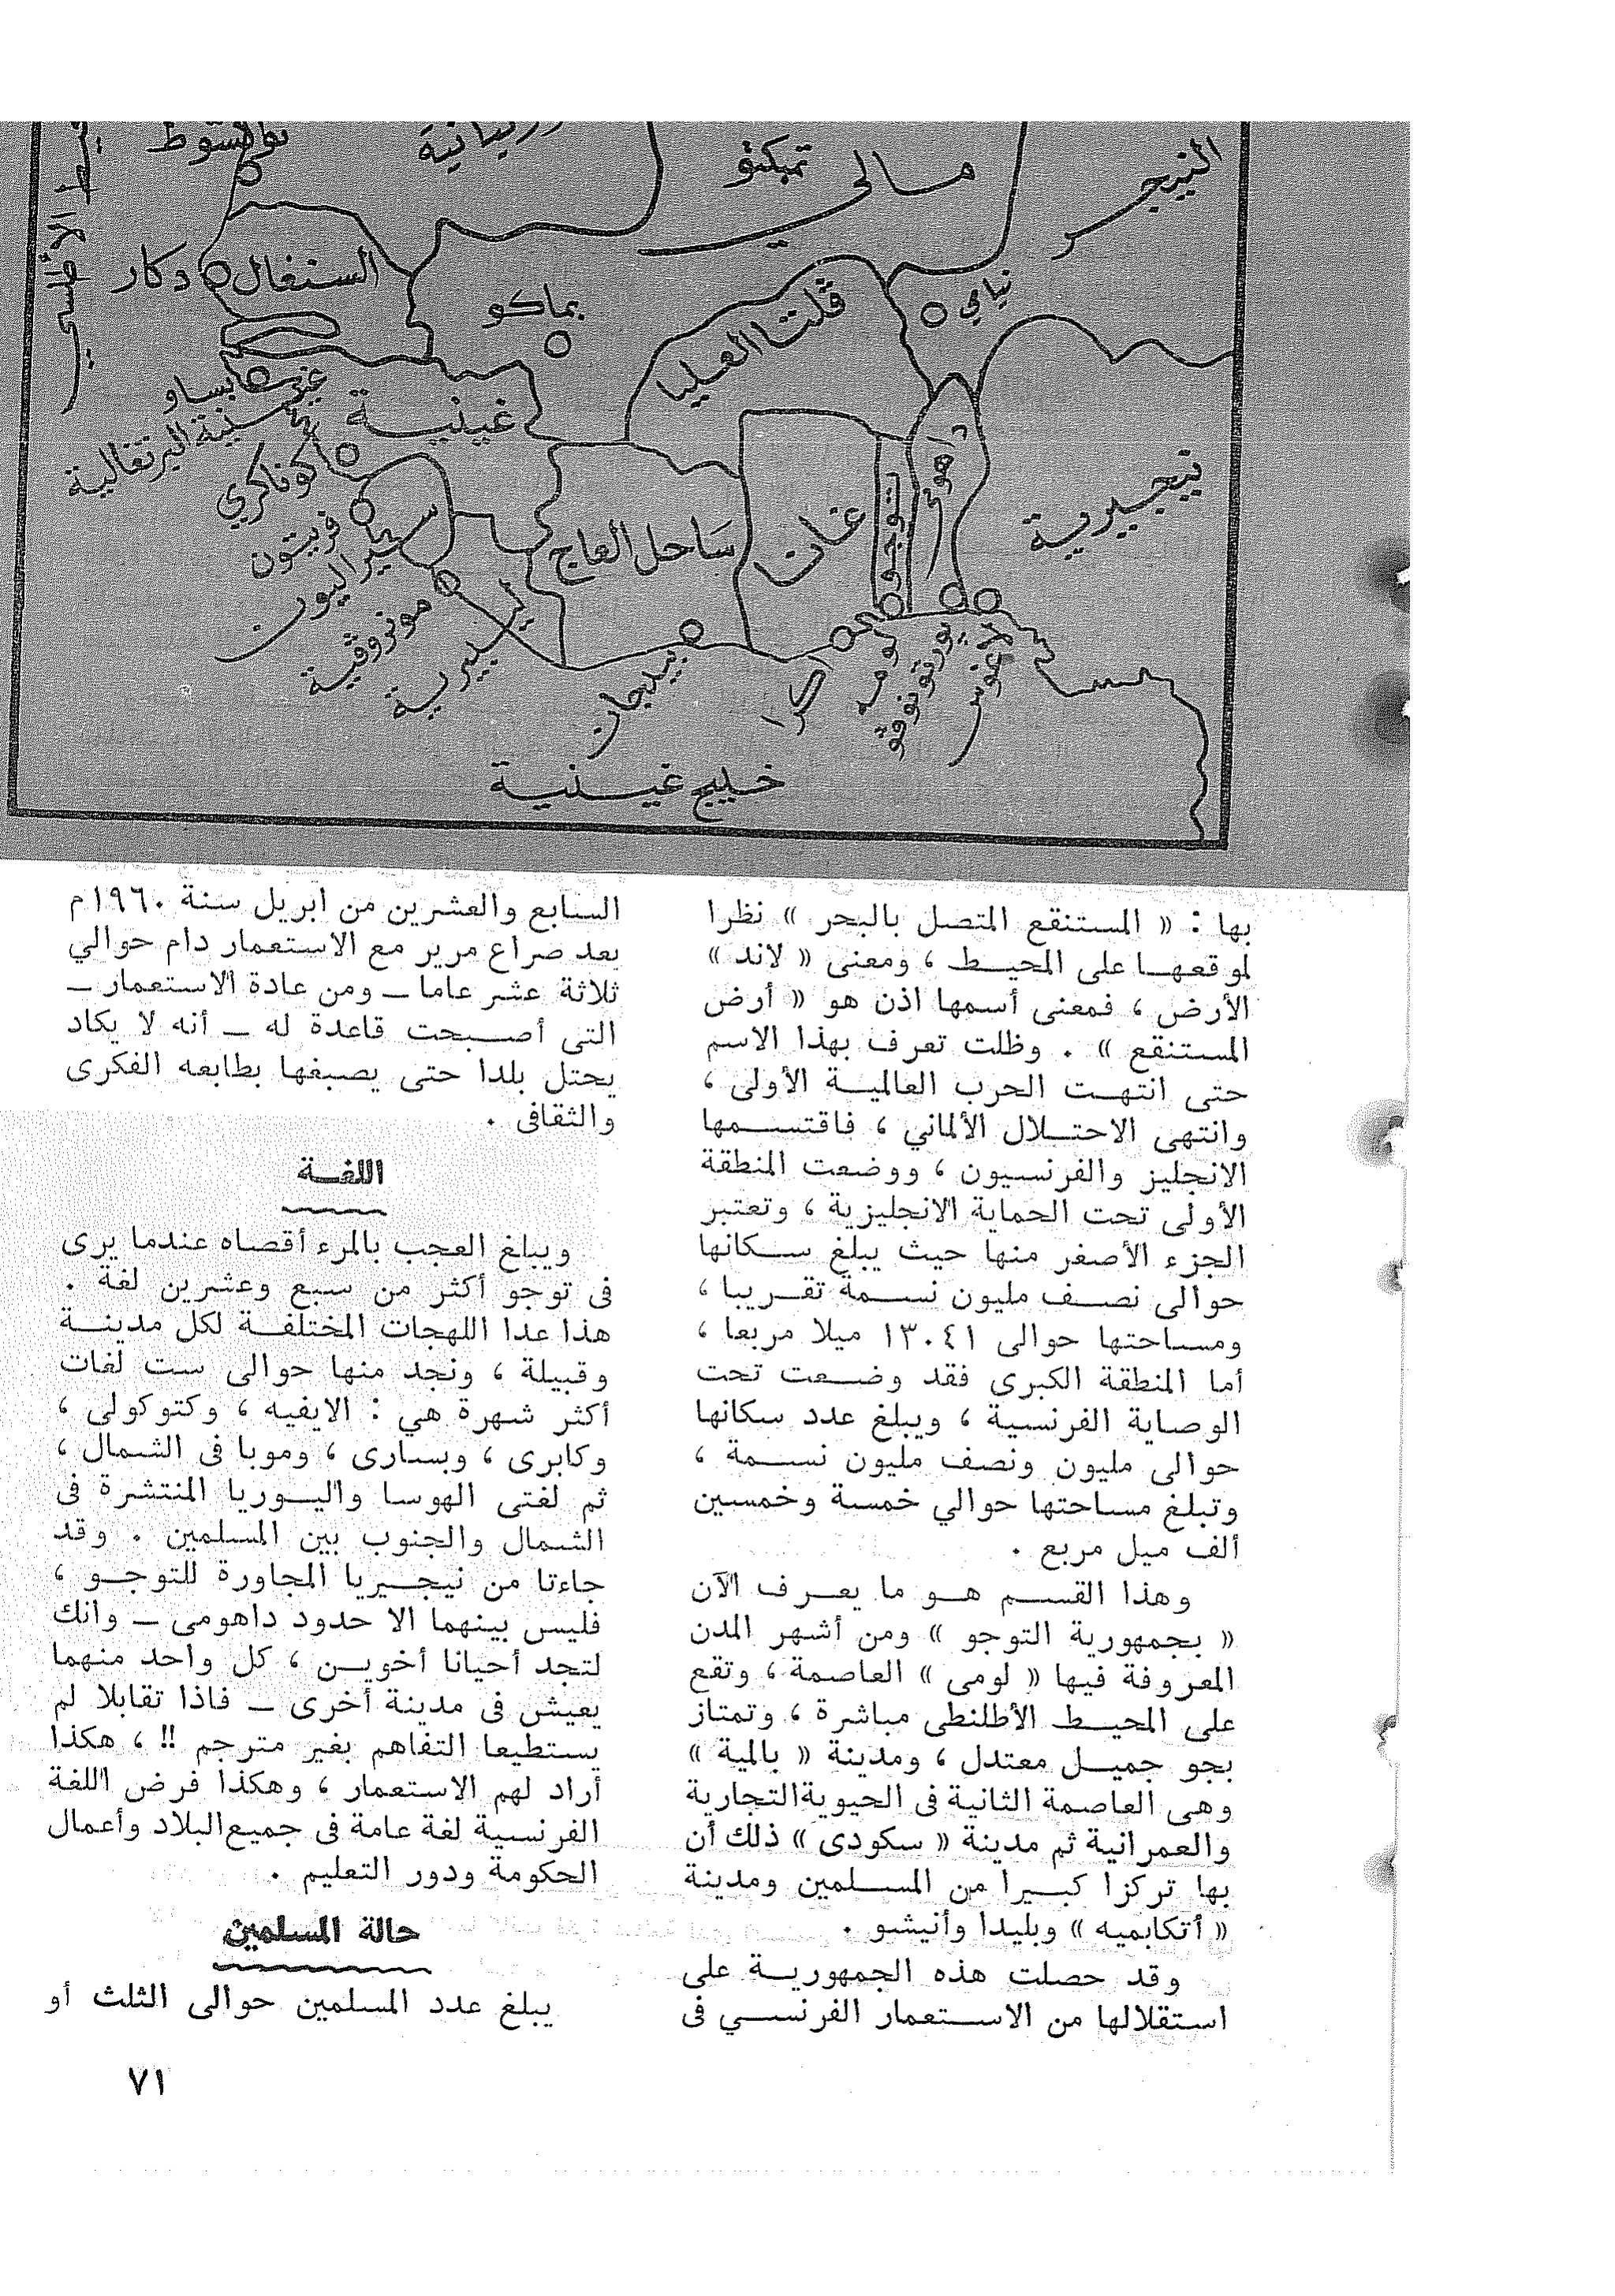 نواقشوط
تمبكتو
مالي
النيجر
السنغال
دكار
بماكو
ڤلتا العليا
نيامي
بيساو
غينية البرتغالية
غينية
كوناكري
فريتون
سيراليون
مونروڤية
ليبيرية
ساحل العاج
غانا
توجو
داهومي
نيجيرية
بيدجان
اكرا
لومه
بورتونوڤو
لاغوس
خليج غينية
بها : « المستنقع المتصل بالبحر » نظرا
لموقعهـا على المحيـط ، ومعنى « لاند »
الأرض ، فمعنى أسمها اذن هو « أرض
المستنقع » . وظلت تعرف بهذا الاسم
حتى انتهـت الحرب العالميـة الأولى ،
وانتهى الاحتـلال الألماني ، فاقتسـمها
الانجليز والفرنسيون ، ووضعت المنطقة
الأولى تحت الحماية الانجليزية ، وتعتبر
الجزء الأصغر منها حيث يبلغ سـكانها
حوالى نصـف مليون نسـمة تقـريبا ،
ومساحتها حوالى ١٣٠٤١ ميلا مربعا ،
أما المنطقة الكبرى فقد وضـعت تحت
الوصاية الفرنسية ، ويبلغ عدد سكانها
حوالى مليون ونصف مليون نسـمة ،
وتبلغ مساحتها حوالي خمسة وخمسين
ألف ميل مربع .
وهذا القسـم هـو ما يعـرف الآن
« بجمهورية التوجو » ومن أشهر المدن
المعروفة فيها « لومى » العاصمة ، وتقع
على المحيـط الأطلنطى مباشرة ، وتمتاز
بجو جميـل معتدل ، ومدينة « بالمية »
وهى العاصمة الثانية فى الحيوية التجارية
والعمرانية ثم مدينة « سكودى » ذلك أن
بها تركزا كبـيرا من المسـلمين ومدينة
« أتكابميه » وبليدا وأنيشو .
وقد حصلت هذه الجمهوريـة على
استقلالها من الاسـتعمار الفرنسـي فى
السابع والعشرين من ابريل سنة ١٩٦٠م
بعد صراع مرير مع الاستعمار دام حوالي
ثلاثة عشر عاما ـ ومن عادة الاستعمار ـ
التى أصـبحت قاعدة له ـ أنه لا يكاد
يحتل بلدا حتى يصبغها بطابعه الفكرى
والثقافى .
اللغـة
ويبلغ العجب بالمرء أقصاه عندما يرى
فى توجو أكثر من سبع وعشرين لغة .
هذا عدا اللهجات المختلفـة لكل مدينـة
وقبيلة ، ونجد منها حوالى ست لغات
أكثر شهرة هي : الايفيه ، وكتوكولى ،
وكابرى ، وبسارى ، وموبا فى الشمال ،
ثم لغتى الهوسا واليـوربا المنتشرة فى
الشمال والجنوب بين المسلمين . وقد
جاءتا من نيجـيريا المجاورة للتوجـو ،
فليس بينهما الا حدود داهومى ـ وانك
لتجد أحيانا أخويـن ، كل واحد منهما
يعيش فى مدينة أخرى ـ فاذا تقابلا لم
يستطيعا التفاهم بغير مترجم !! ، هكذا
أراد لهم الاستعمار ، وهكذا فرض اللغة
الفرنسية لغة عامة فى جميع البلاد وأعمال
الحكومة ودور التعليم .
حالة المسلمين
يبلغ عدد المسلمين حوالى الثلث أو
٧١